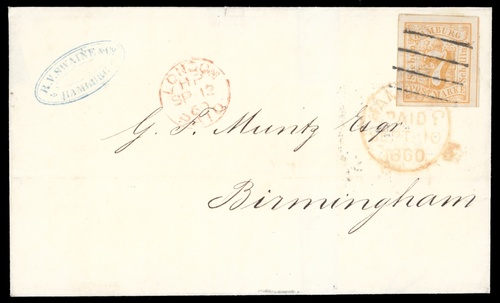 R. V. SWAINE & Co
HAMBURG
LONDON
SP 12
60
PAID
HAMBURG
7
PAID
10
1860
G. F. Muntz Esqr
Birmingham